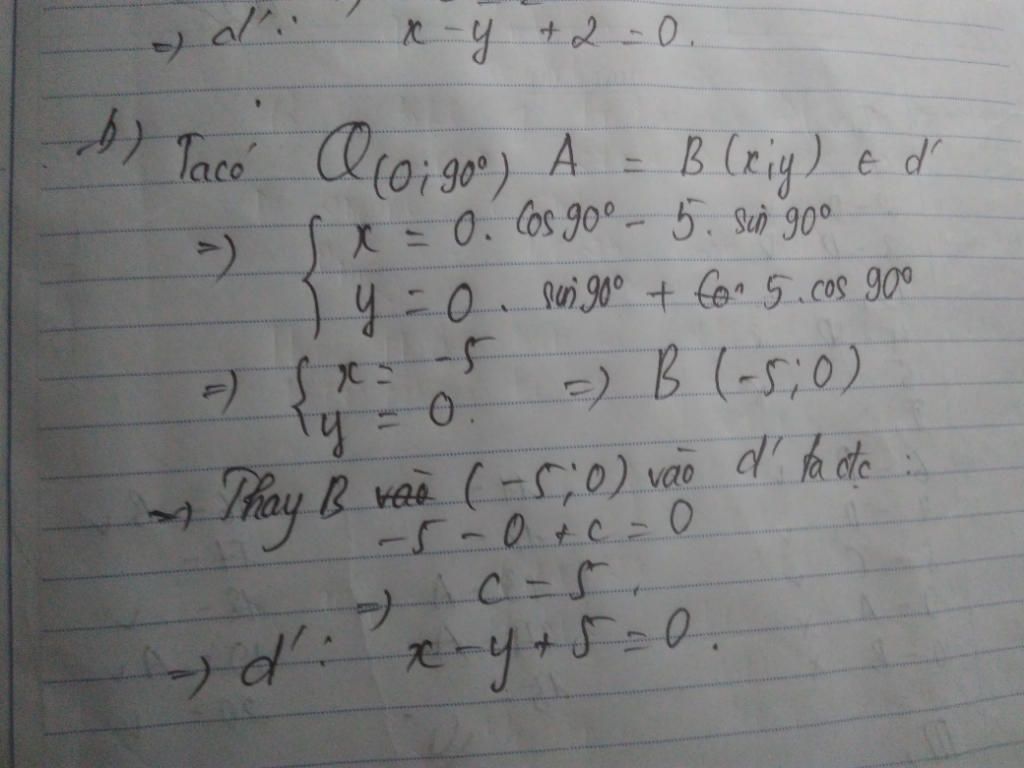 => d': x - y + 2 = 0.
b) Ta có Q(0;90°) A = B(x;y) ∈ d'
=> { x = 0. Cos90° - 5. sin 90°
y = 0. sin90° + 5. cos 90°
=> { x = -5
y = 0. => B (-5;0)
=> Thay B vào (-5;0) vào d' ta đc :
-5 - 0 + c = 0
=> c = 5.
=> d': x - y + 5 = 0.